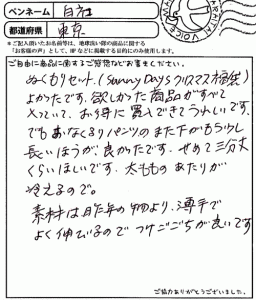 ペンネーム
都道府県 東京
＊ご記入頂いたお名前等は、地球洗い隊の商品に関する
「お客様の声」として、HPなどに掲載する目的にのみ使用します。
ご自由に商品に関するご感想などお書きください。
ぬくもりセット。(Sunny Days クリスマス福袋)
よかったです。欲しかった商品がすべて
入っていて、お得に買入できてうれしいです。
でもあったかパンツのまた下がもう少し
長いほうが良かったです。せめて三分丈
くらいほしいです。太もものあたりが
冷えるので。
素材は昨年の物より、薄手で
よく伸びるのでつけごごちが良いです
ご協力ありがとうございました。